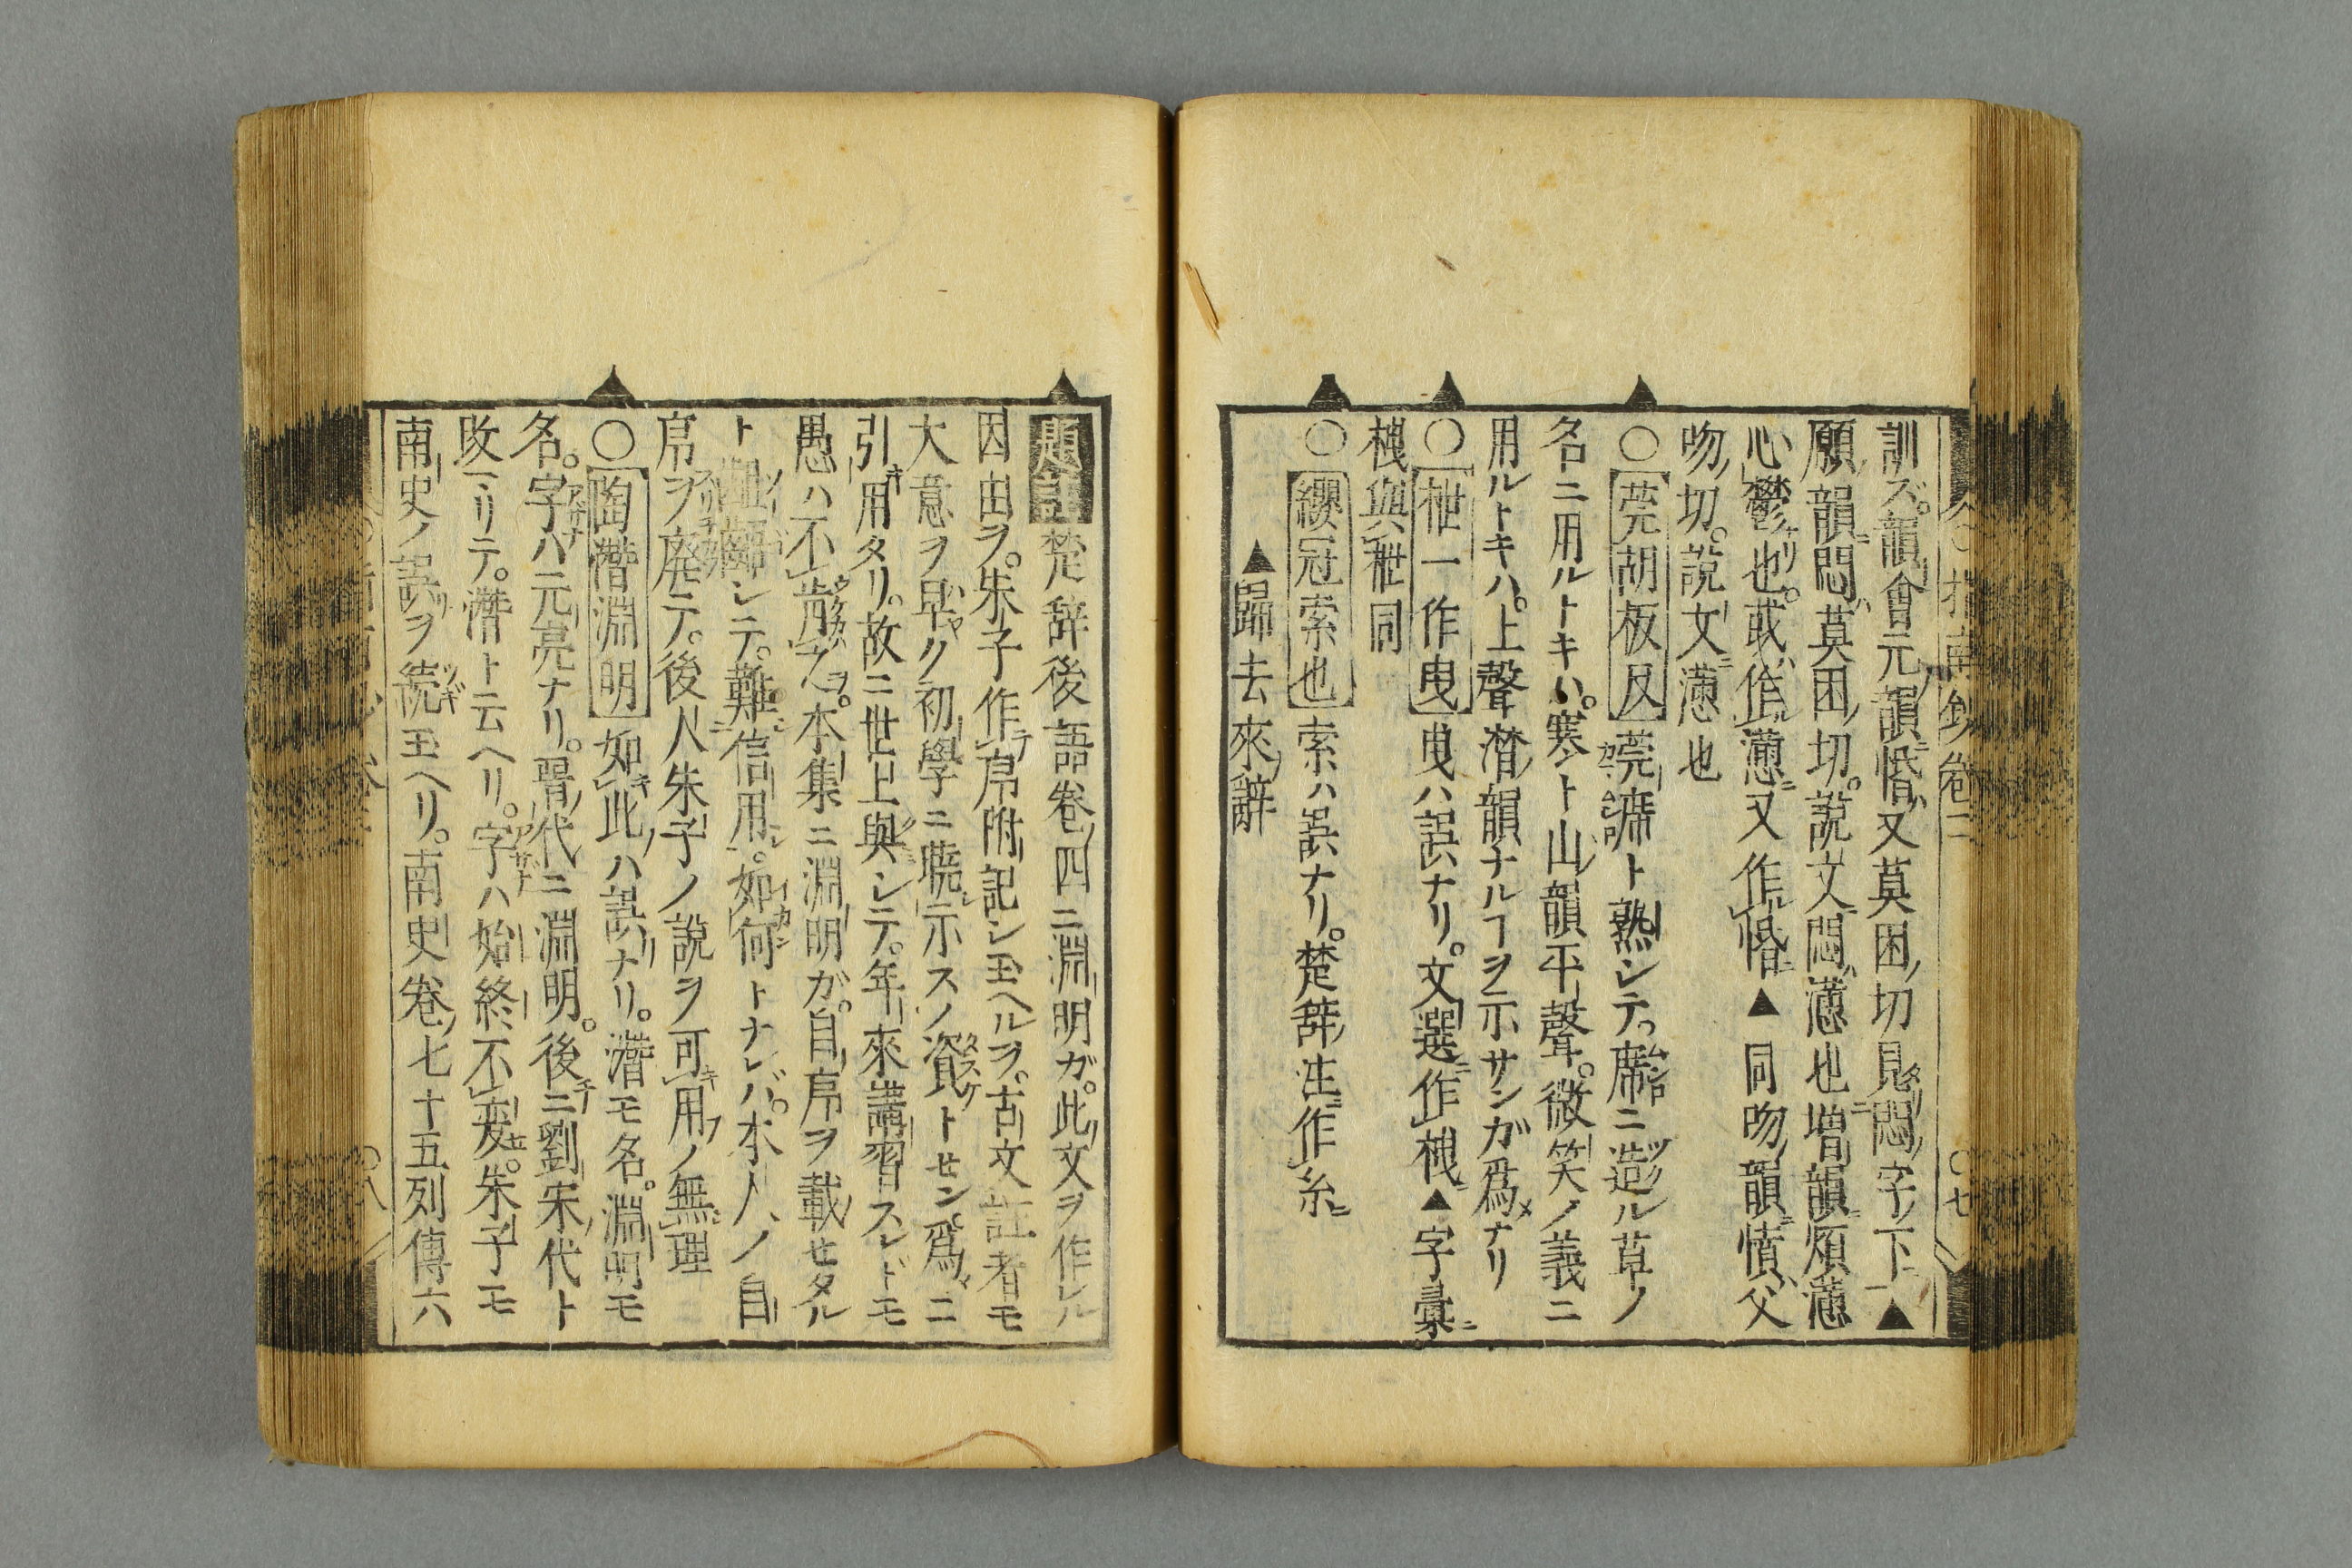 訓ズ。韻會元韻惛又莫困ノ切見悶ノ字ノ下ニ▲
願ノ韻ニ悶ハ莫困ノ切。說文ニ悶ハ懣也增韻ニ煩懣
心鬱ナリ也。或ハ作懣ニ又作惛ニ▲同吻ノ韻ニ憤ハ父
吻ノ切。說文ニ懣也
〇莞胡板反莞ハ蓆ト熟シテ。席ニ造ル草ノ
名ニ用ルトキハ。寒ト山ノ韻平聲。微笑ノ義ニ
用ルトキハ。上聲潸ノ韻ナルヿヲ示サンガ爲メナリ
〇枻一作曳曳ハ誤ナリ。文選ニ作栧ニ▲字彙ニ
栧與枻同
〇纓冠索也索ハ誤ナリ。楚辭ノ注ニ作糸ニ
▲歸去來ノ辭
題註楚辞後語卷ノ四ニ淵明ガ。此ノ文ヲ作レル
因由ヲ。朱子作テ㡳附記シ玉ヘルヲ。古文註者モ
大意ヲ早ク初學ニ曉示スノ資トせン。爲メニ
引キ用タリ。故ニ世上與シテ。年來講習スレドモ
愚ハ不肯之ヲ。本集ニ淵明ガ。自序ヲ載せタル
トシテ。難シ信用。如何トナレバ。本人ノ自
序ヲ廃テ。後人朱子ノ說ヲ可キ用フノ無理ニ
〇陶潛淵明如キ此ノハ誤ナリ。潛モ名。淵明モ
名。字ハ元亮ナリ。晋ノ代ニ淵明。後チニ劉宋ノ代ト
改マリテ。潛ト云ヘリ。字ハ始終不変せ。朱子モ
南史ノ誤ヲ続玉ヘリ。南史卷ノ七十五列傳六